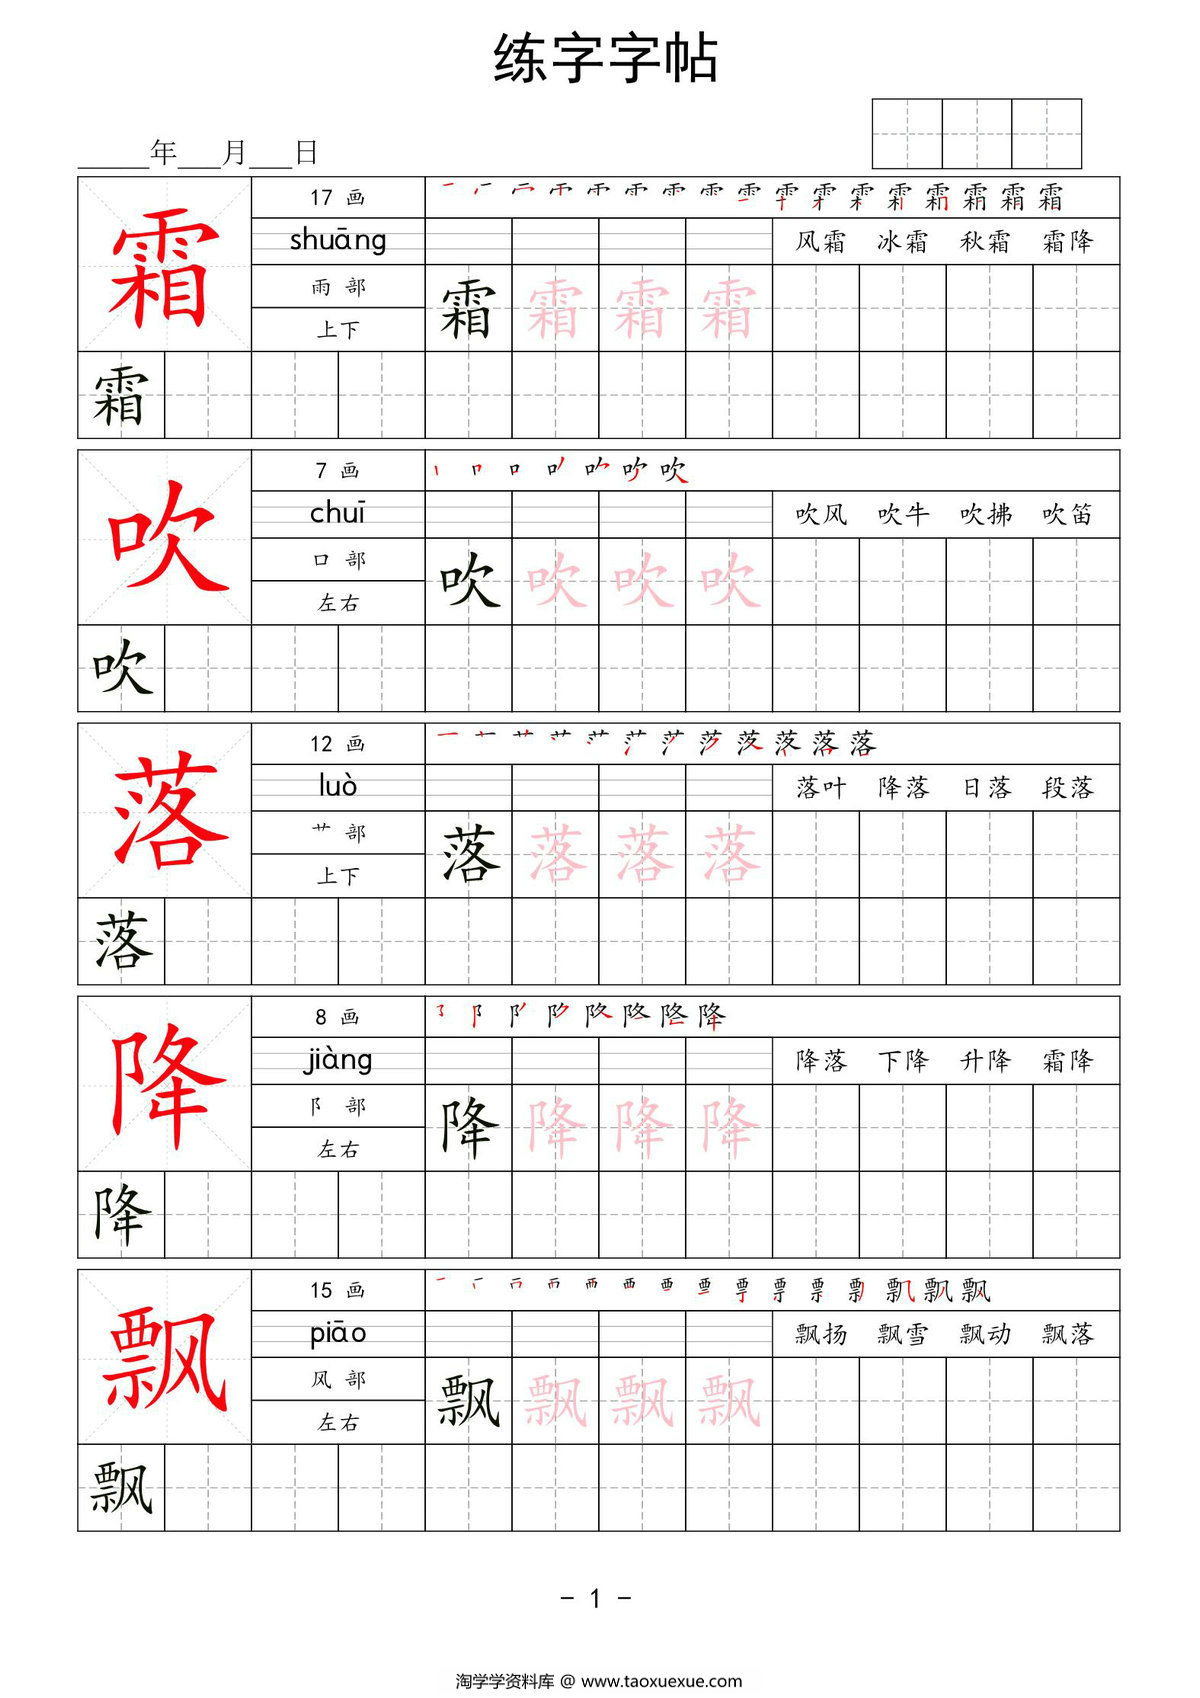 练字字帖
______年___月___日
霜 17 画
shuāng 风霜 冰霜 秋霜 霜降
雨 部 霜 霜 霜 霜
上下
霜
吹 7 画
chuī 吹风 吹牛 吹拂 吹笛
口 部 吹 吹 吹 吹
左右
吹
落 12 画
luò 落叶 降落 日落 段落
艹 部 落 落 落 落
上下
落
降 8 画
jiàng 降落 下降 升降 霜降
阝 部 降 降 降 降
左右
降
飘 15 画
piāo 飘扬 飘雪 飘动 飘落
风 部 飘 飘 飘 飘
左右
飘
- 1 -
淘学学资料库 @ www.taoxuexue.com